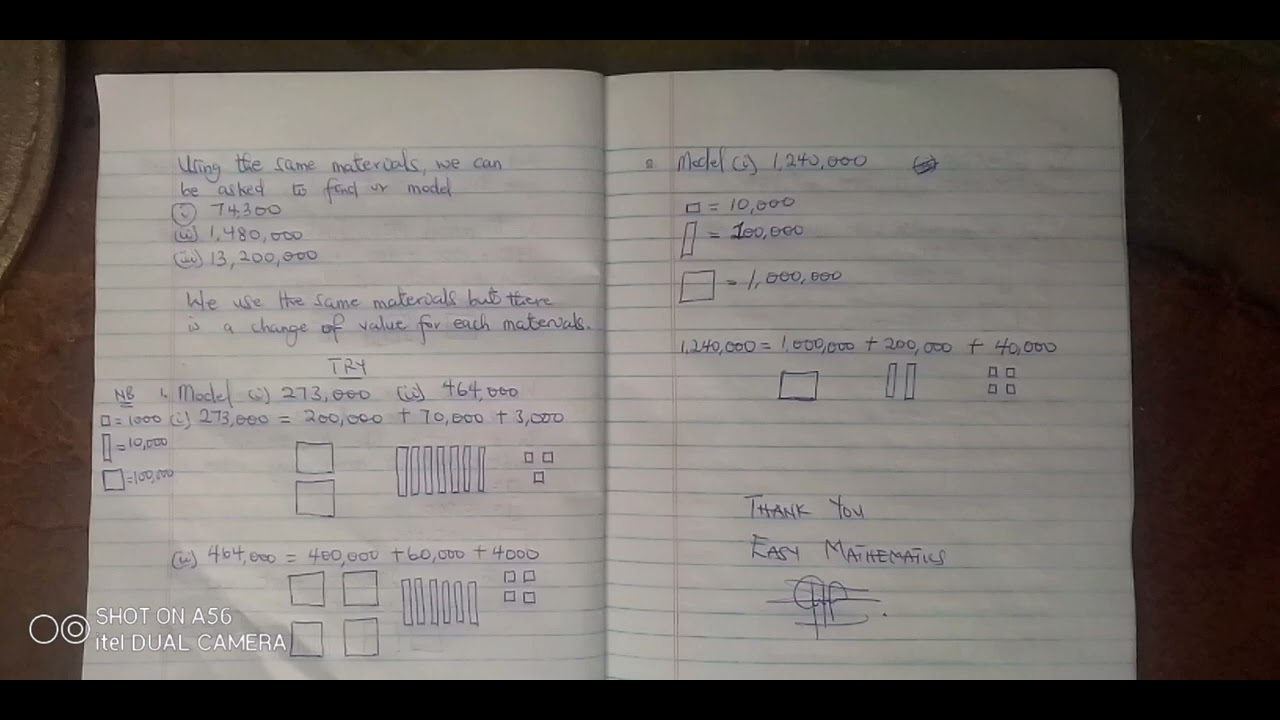 Using the same materials, we can
be asked to find or model
(i) 74,300
(ii) 1,480,000
(iii) 13,200,000
We use the same materials but there
is a change of value for each materials.
TRY
NB 1. Model (i) 273,000 (ii) 464,000
= 1000 (i) 273,000 = 200,000 + 70,000 + 3,000
= 10,000
= 100,000
(ii) 464,000 = 400,000 + 60,000 + 4000
2. Model (i) 1,240,000
= 10,000
= 100,000
= 1,000,000
1,240,000 = 1,000,000 + 200,000 + 40,000
THANK YOU
EASY MATHEMATICS
SHOT ON A56
itel DUAL CAMERA